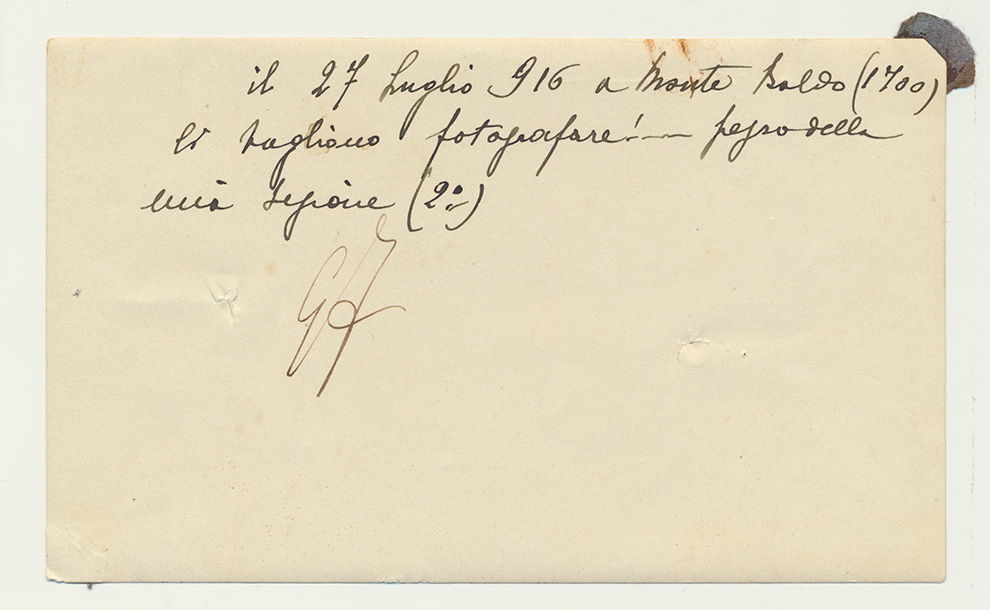 il 27 Luglio 916 a Monte Baldo (1700)
ci vogliono fotografare! — pezzo della
mia sezione (2ª)